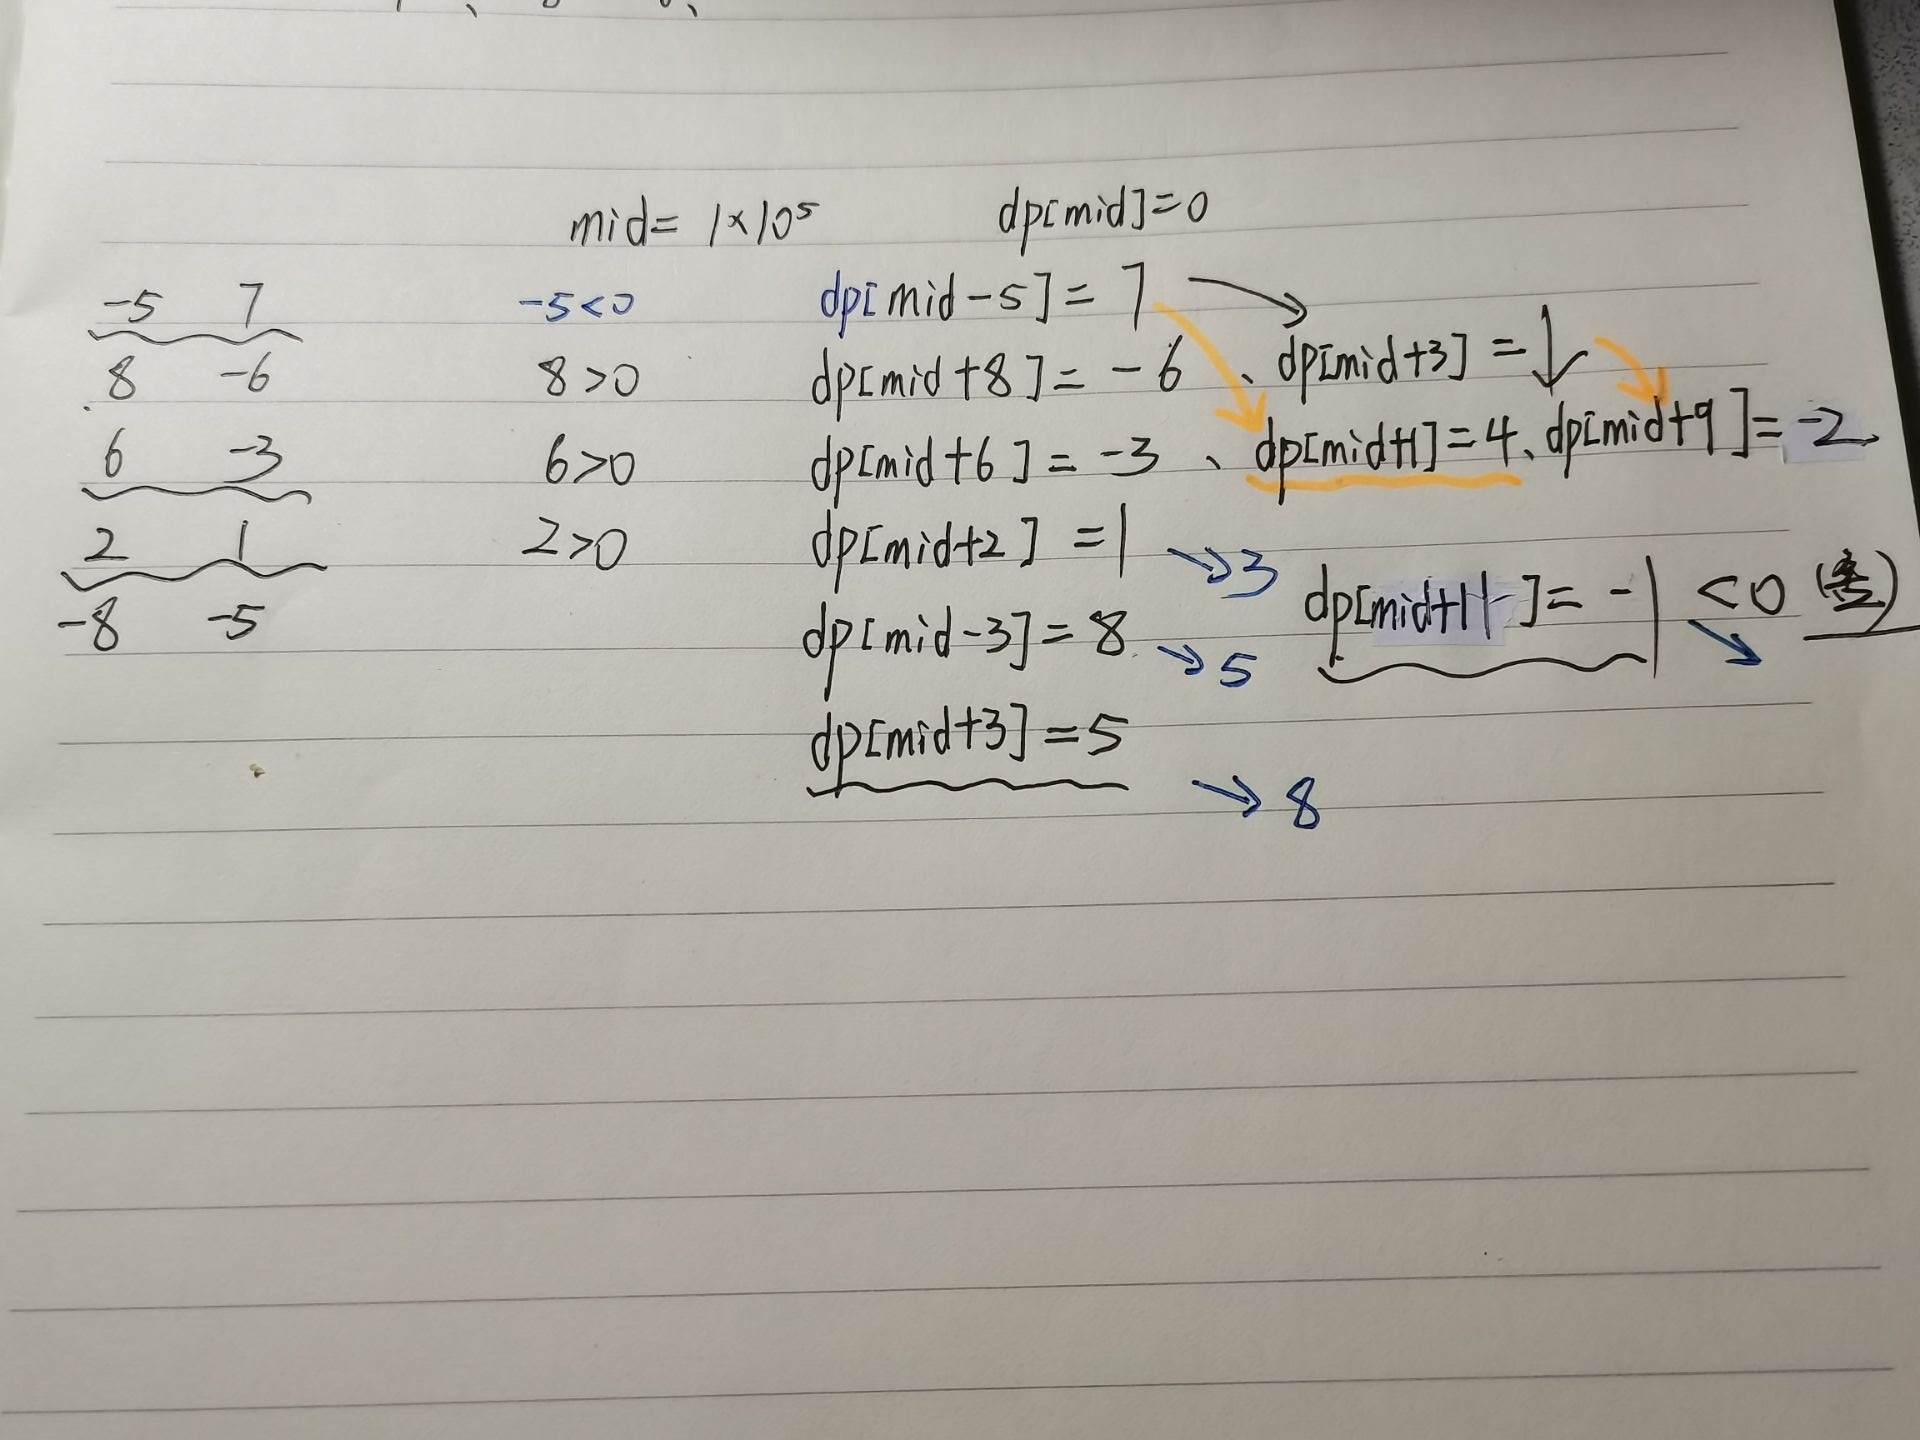 mid= 1×10⁵ dp[mid]=0
-5 7 -5<0 dp[mid-5]=7
8 -6 8>0 dp[mid+8]=-6 、dp[mid+3]=1
6 -3 6>0 dp[mid+6]=-3 、dp[mid+1]=4、dp[mid+9]=-2
2 1 2>0 dp[mid+2]=1 →3 dp[mid+11]=-1 <0
-8 -5 dp[mid-3]=8 →5
dp[mid+3]=5 →8